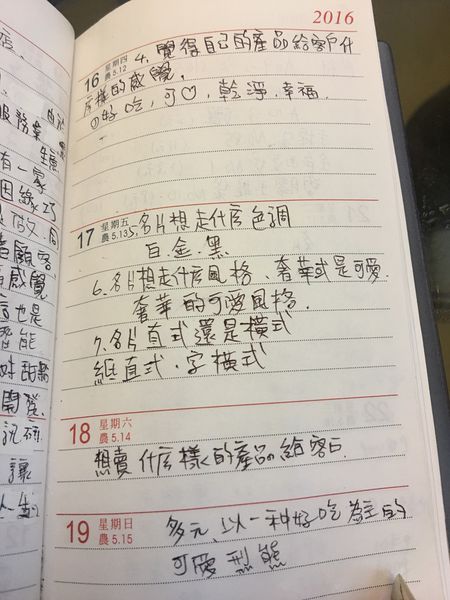 2016
16 星期四 農5.12
4. 覺得自己的產品給客戶什
麼樣的感覺.
①好吃,可♡,乾淨.幸福.
17 星期五 農5.13
5.名片想走什麼色調
白.金.黑
6.名片想走什麼風格、奢華或是可愛.
奢華的可愛風格.
7.名片直式還是橫式
紙直式.字橫式
18 星期六 農5.14
想賣什麼樣的產品給客戶.
19 星期日 農5.15
多元.以一种好吃為主的
可愛型態
店.
服務業
有一家
因緣
做
顧客
感覺
這也是
智能
甜點
開發.
讓